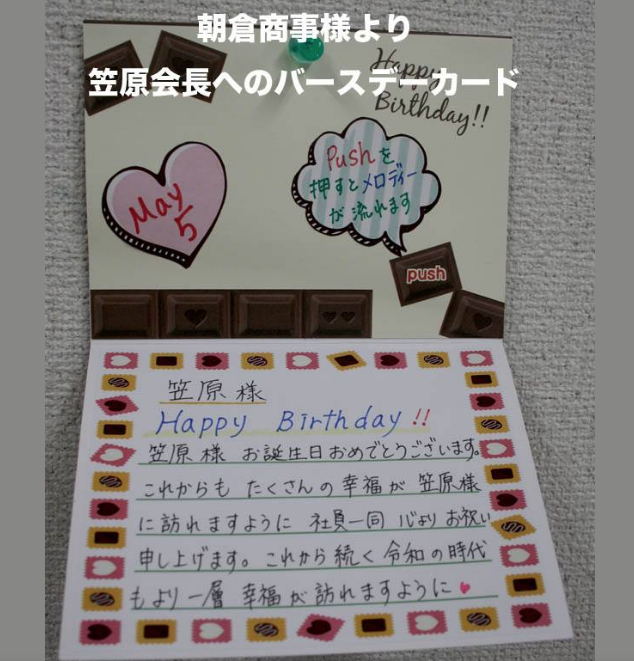 朝倉商事様より
笠原会長へのバースデーカード
Happy
Birthday!!
May
5
Pushを
押すとメロディー
が流れます
push
笠原様
Happy Birthday!!
笠原様 お誕生日おめでとうございます。
これからも たくさんの幸福が 笠原様
に訪れますように 社員一同 心よりお祝い
申し上げます。これから続く令和の時代
もより一層 幸福が訪れますように♥